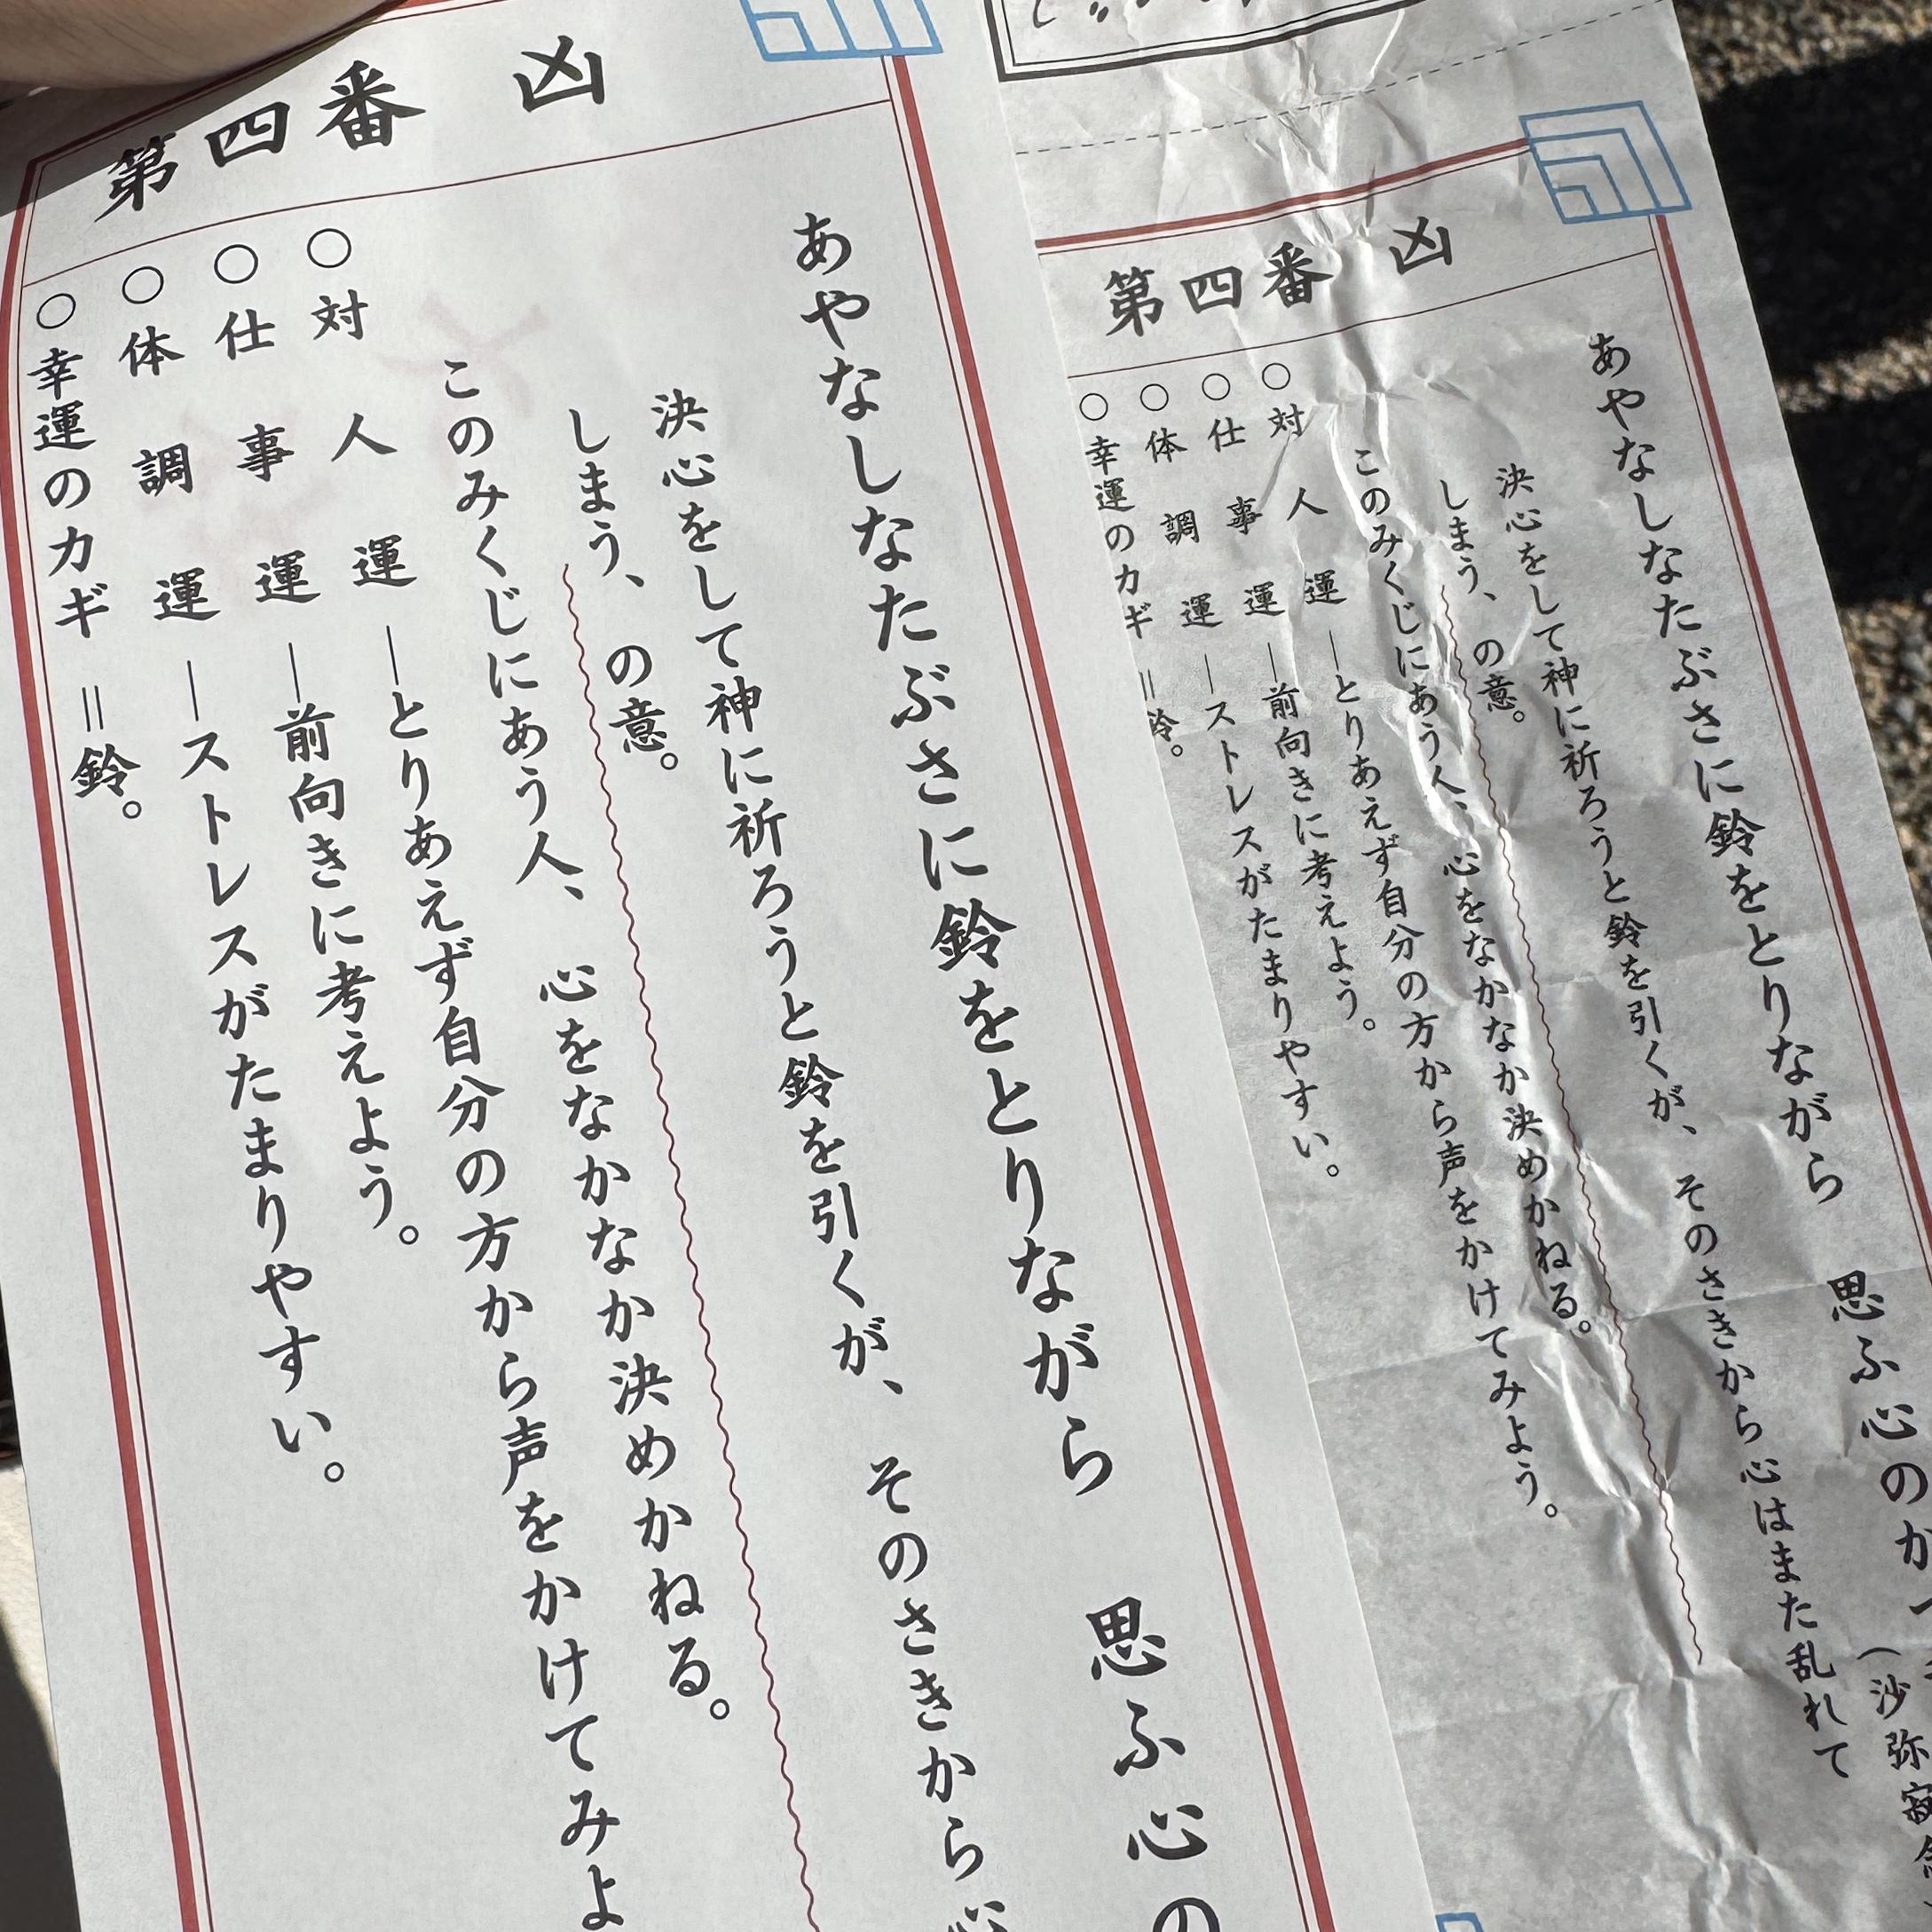 第四番 凶
あやなしなたぶさに鈴をとりながら 思ふ心の
決心をして神に祈ろうと鈴を引くが、そのさきから心
しまう、の意。
このみくじにあう人、心をなかなか決めかねる。
○対人運―とりあえず自分の方から声をかけてみよ
○仕事運―前向きに考えよう。
○体調運―ストレスがたまりやすい。
○幸運のカギ=鈴。
第四番 凶
あやなしなたぶさに鈴をとりながら 思ふ心のか
(沙弥寂念
決心をして神に祈ろうと鈴を引くが、そのさきから心はまた乱れて
しまう、の意。
このみくじにあう人、心をなかなか決めかねる。
○対人運―とりあえず自分の方から声をかけてみよう。
○仕事運―前向きに考えよう。
○体調運―ストレスがたまりやすい。
○幸運のカギ=鈴。